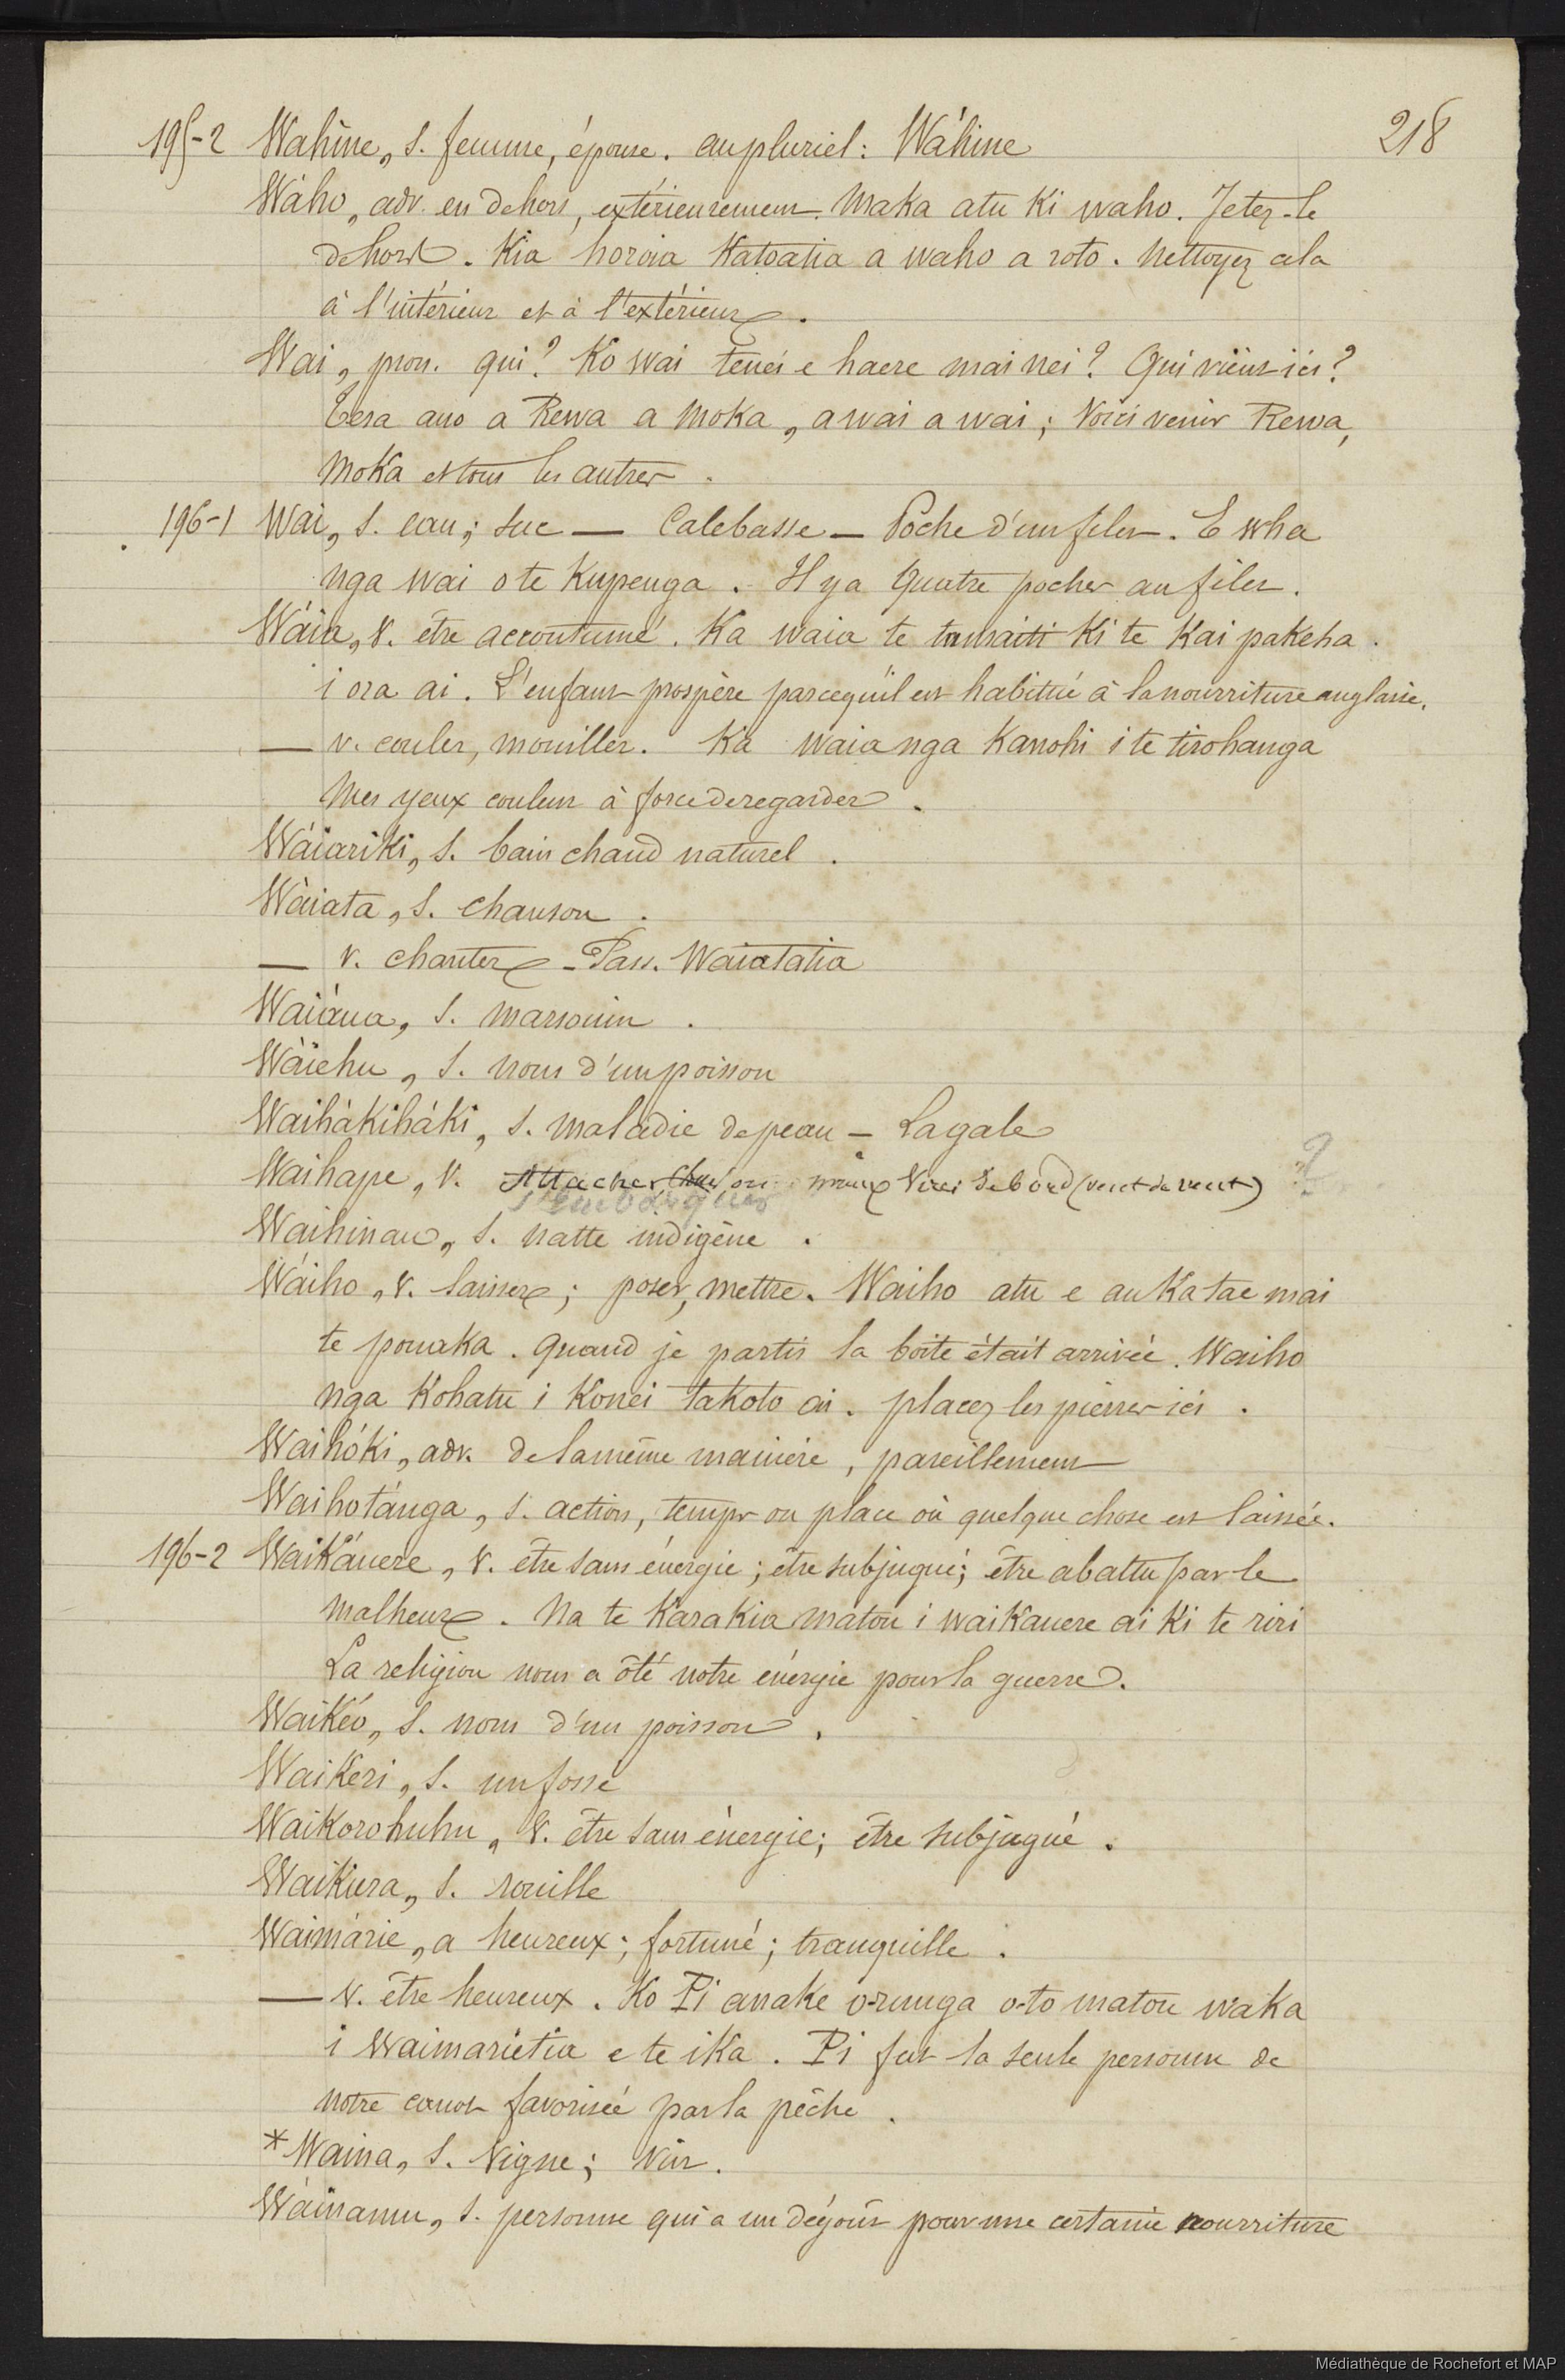 195-2 Wahine, s. femme, épouse. au pluriel: Wáhine
218
Wáho, adv. en dehors, extérieurement. Maka atu ki waho. Jetez-le
dehors. Kia horoia katoatia a waho a roto. Nettoyez cela
à l'intérieur et à l'extérieur.
Wai, pron. qui? Ko wai tenei e haere mai nei? Qui vient ici?
Tera ano a Rewa a Moka, a wai a wai; Voici venir Rewa,
Moka et tous les autres.
196-1 Wai, s. eau; suc — Calebasse — Poche d'un filet. E wha
nga wai o te Kupenga. Il y a quatre poches au filet.
Wáia, v. être accoutumé. Ka waia te tamaiti ki te kai pakeha
i ora ai. L'enfant prospère parcequ'il est habitué à la nourriture anglaise.
— v. couler, mouiller. Ka waia nga kanohi i te tirohanga
Mes yeux coulent à force de regarder.
Wáiariki, s. bain chaud naturel.
Wáiata, s. chanson.
— v. chanter — Pass. Waiatatia
Waiáua, s. marsouin.
Wáiehu, s. nom d'un poisson
Waihákiháki, s. maladie de peau — La gale
Waihape, v. Attacher ou mieux Virer de bord (vent de vent) ?
s'embarquer
Waihinau, s. natte indigène.
Wáiho, v. laisser; poser, mettre. Waiho atu e au ka tae mai
te pouaka. Quand je partis la boite était arrivée. Waiho
nga kohatu i konei takoto ai. placez les pierres ici.
Waihóki, adv. de la même manière, pareillement
Waihotánga, s. action, temps ou place où quelque chose est laissée.
196-2 Waikáuere, v. être sans énergie; être subjugué; être abattu par le
malheur. Na te Karakia matou i waikauere ai ki te riri
La religion nous a ôté notre énergie pour la guerre.
Waikéo, s. nom d'un poisson.
Waikeri, s. un fossé
Waikorohuhu, v. être sans énergie; être subjugué.
Waikura, s. rouille
Waimárie, a heureux; fortuné; tranquille.
— v. être heureux. Ko Pi anake o-runga o-to matou waka
i Waimarietia e te ika. Pi fut la seule personne de
notre canot favorisée par la pêche.
*Waina, s. Vigne; Vin.
Wáinamu, s. personne qui a un dégoût pour une certaine nourriture
Médiathèque de Rochefort et MAP